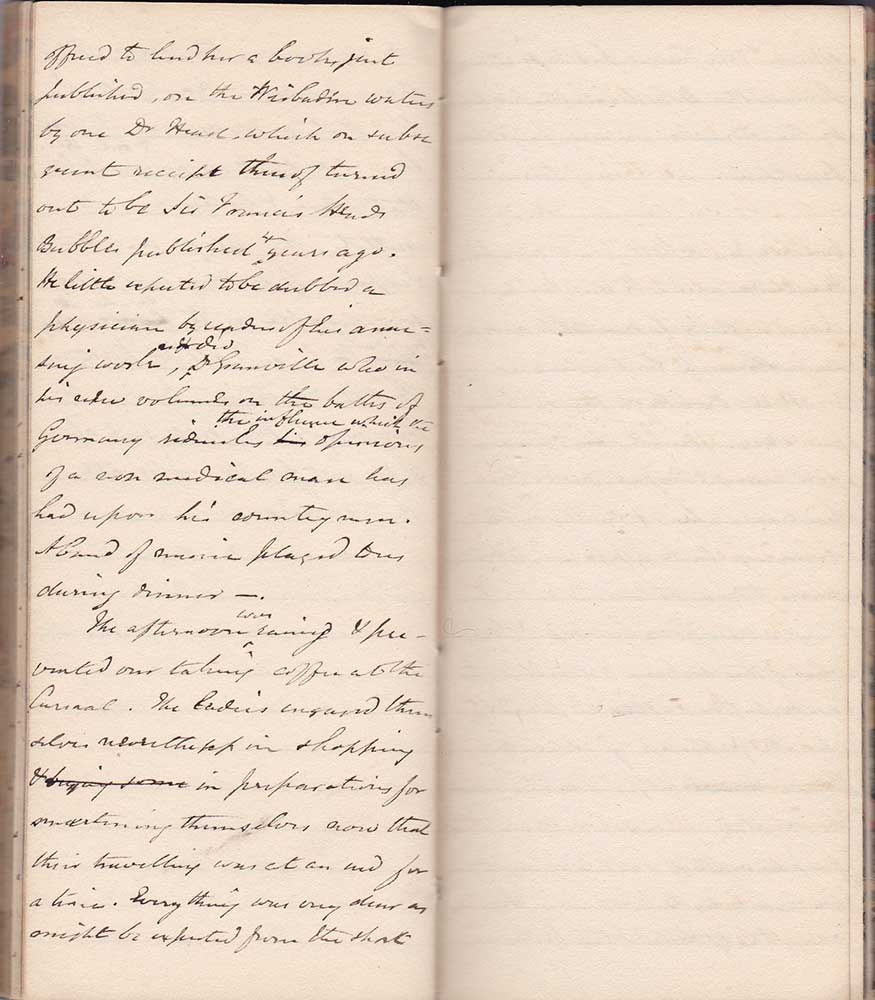 offered to lend her a book, just
published, on the Wisbaden waters
by one Dr Head, which on subse
quent receipt thereof turned
out to be Sir Francis Heads
Bubbles published 4 years ago.
He little expected to be dubbed a
physician by readers of his amu=
sing work, & did Dr Granville who in
his new volumes on the baths of
Germany ridicules the influence which the opinions
of a non medical man has
had upon his countrymen.
A Band of music played to us
during dinner —.
The afternoon was rainy & pre-
vented our taking coffee at the
Cursaal. The Ladies engaged them
selves nevertheless in shopping
& buying some in preparations for
smartening themselves now that
their travelling was at an end for
a time. Everything was very dear as
might be expected from the short